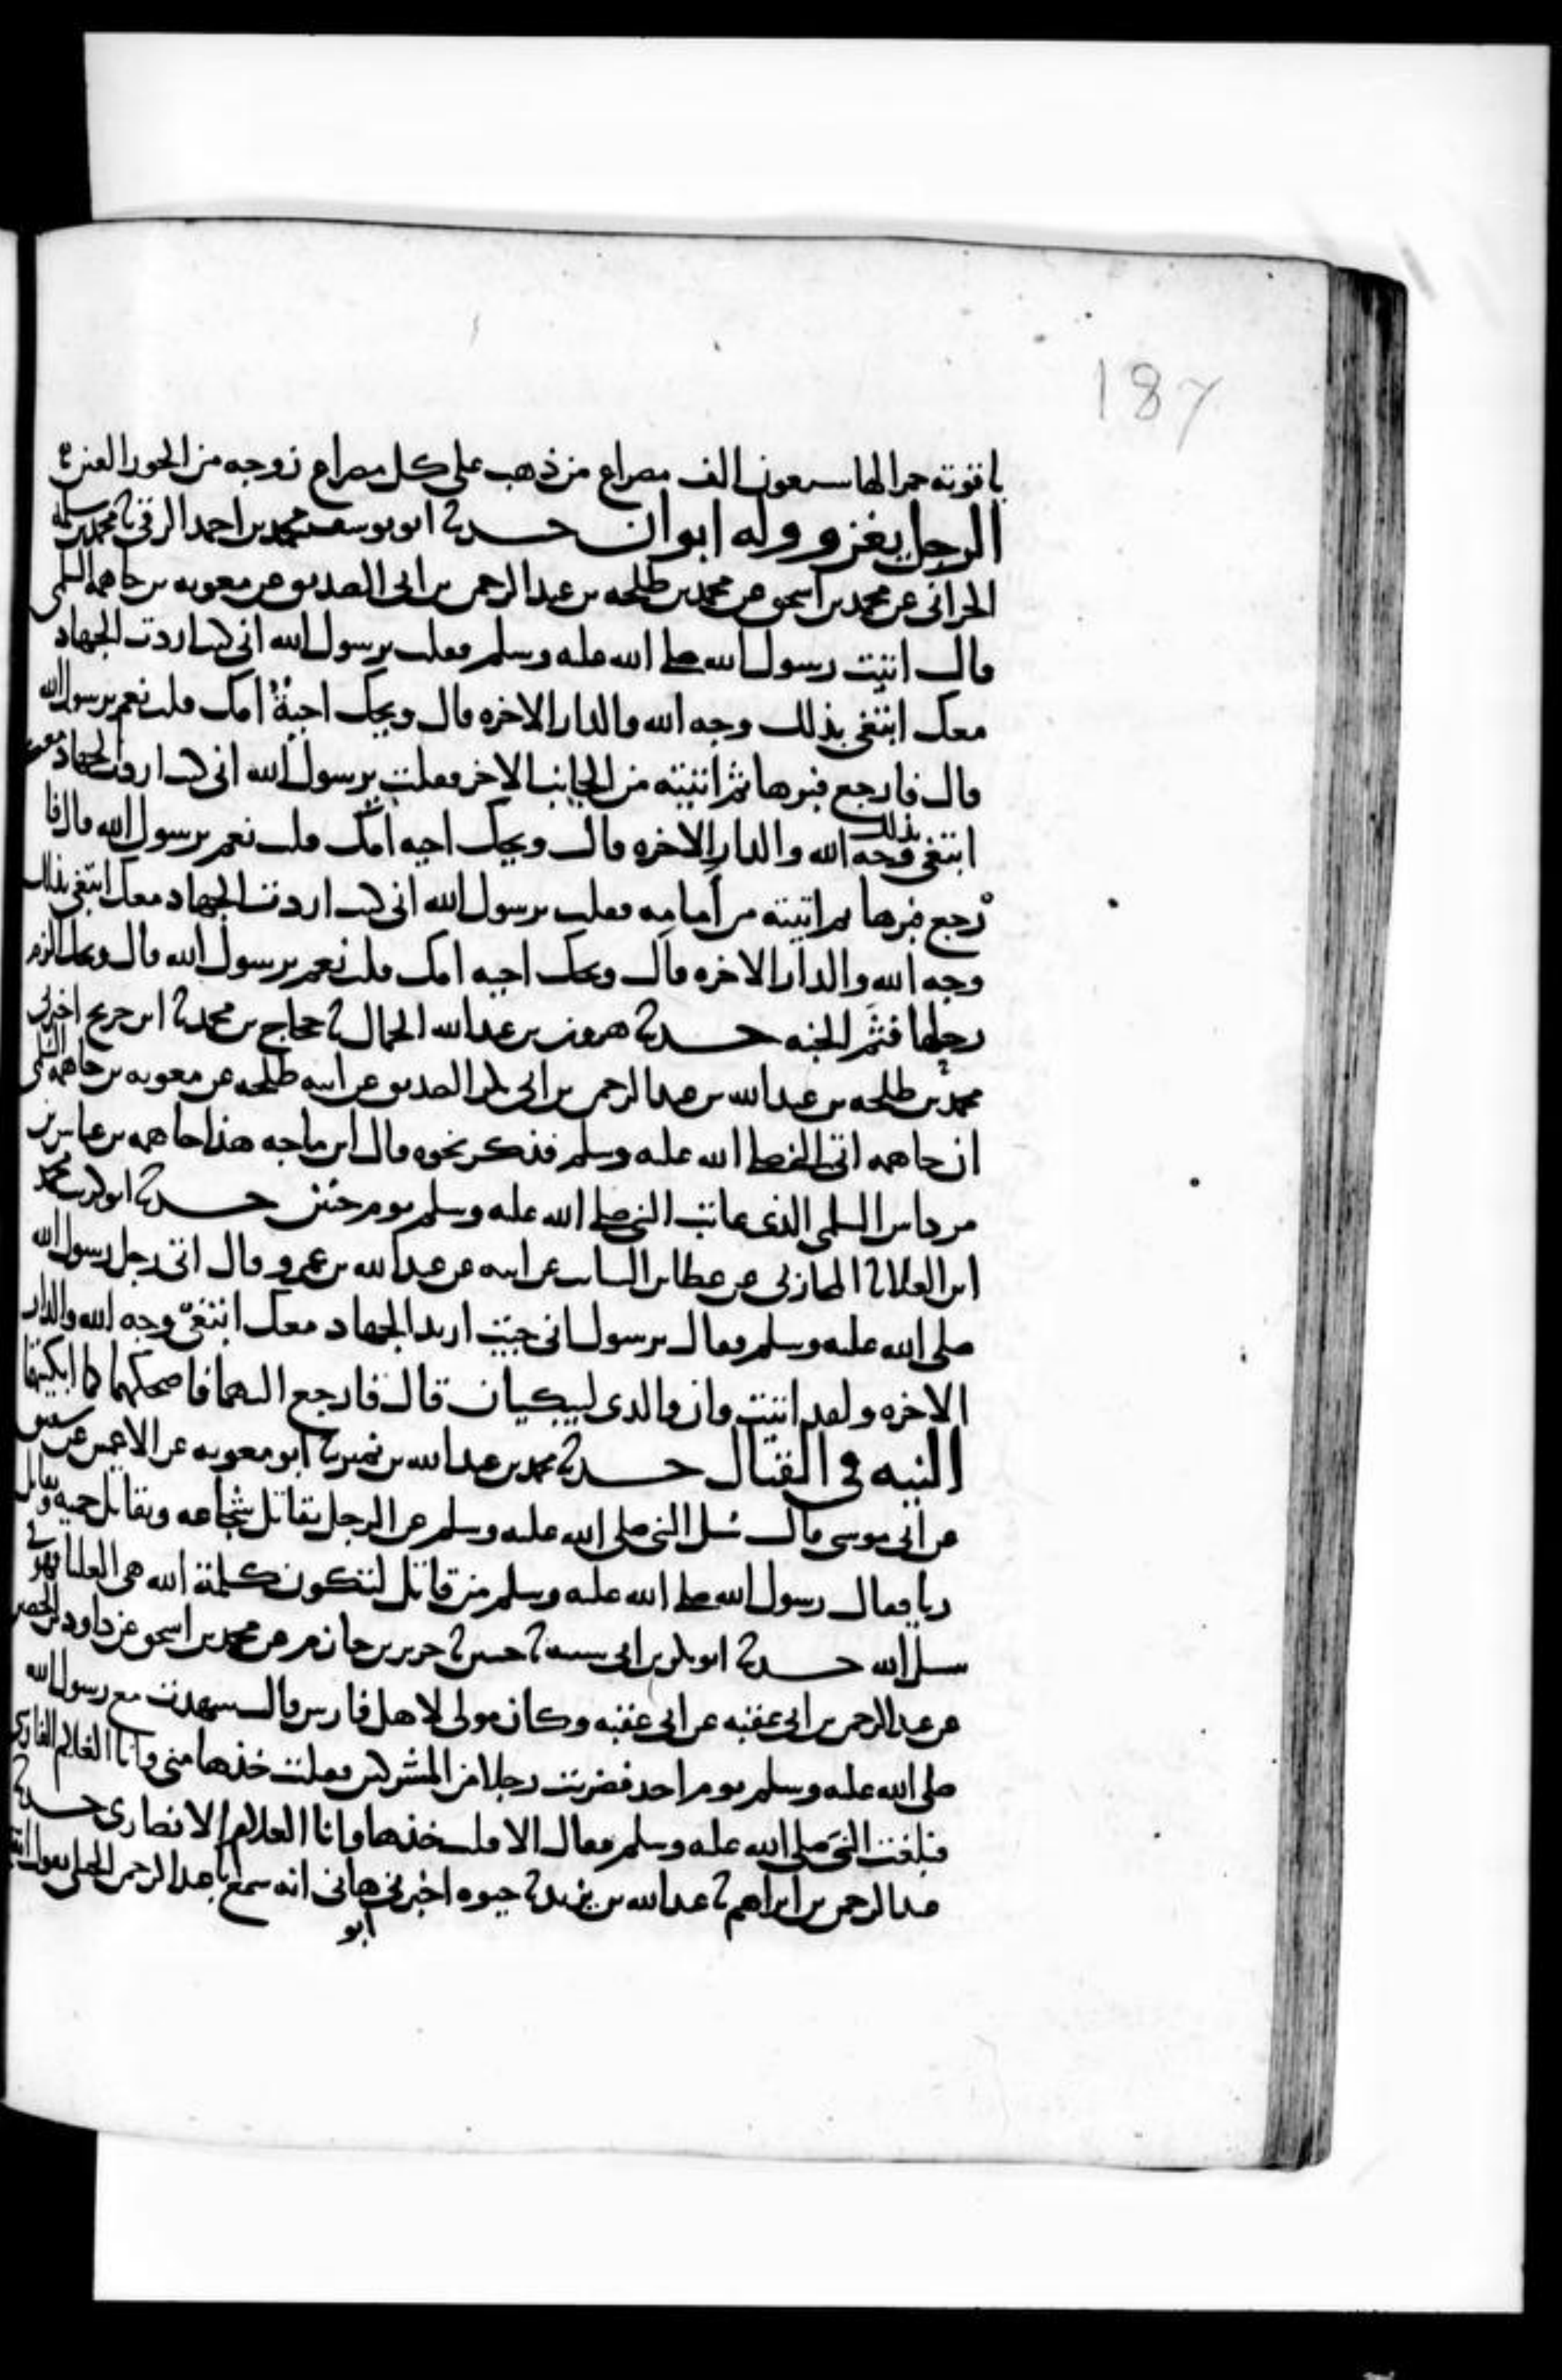 187
ياقوتة حمرا لها سبعون الف مصراع من ذهب على كل مصراع زوجه من الحور العين
الرجل يغزو وله ابوان حدثنا ابو يوسف محمد بن احمد الرقي نا محمد بن سلمة
الحراني عن محمد بن اسحق عن محمد بن طلحه بن عبد الرحمن بن ابي الصديق عن معويه بن جاهمه السلمي
قال اتيت رسول الله صلى الله عليه وسلم فقلت يرسول الله اني كنت اردت الجهاد
معك ابتغي بذلك وجه الله والدار الاخره قال ويحك احية امك قلت نعم يرسول الله
قال فارجع فبرها ثم اتيته من الجانب الاخر فقلت يرسول الله اني كنت اردت الجهاد معك
ابتغي بذلك وجه الله والدار الاخره قال ويحك احيه امك قلت نعم يرسول الله قال فا
رجع فبرها ثم اتيته من امامه فقلت يرسول الله اني كنت اردت الجهاد معك ابتغي بذلك
وجه الله والدار الاخره قال ويحك احيه امك قلت نعم يرسول الله قال ويحك الزم
رجلها فثم الجنه حدثنا هرون بن عبد الله الحمال نا حجاج بن محمد نا ابن جريج اخبرني
محمد بن طلحه بن عبد الله بن عبد الرحمن بن ابي بكر الصديق عن ابيه طلحه عن معويه بن جاهمه السلمي
ان جاهمه اتى النبي صلى الله عليه وسلم فذكر نحوه قال ابن ماجه هذا جاهمه بن عباس بن
مرداس السلمي الذي عاتب النبي صلى الله عليه وسلم يوم حنين حدثنا ابو كريب محمد
ابن العلا نا المحاربي عن عطا بن السائب عن ابيه عن عبد الله بن عمرو قال اتى رجل رسول الله
صلى الله عليه وسلم فقال يرسول اني جيت اريد الجهاد معك ابتغي وجه الله والدار
الاخره ولقد اتيت وان والدي ليبكيان قال فارجع اليهما فاضحكهما كما ابكيتهما
النيه في القتال حدثنا محمد بن عبد الله بن نمير نا ابو معويه عن الاعمش عن شقيق
عن ابي موسى قال سل النبي صلى الله عليه وسلم عن الرجل يقاتل شجاعه ويقاتل حميه ويقاتل
ريا فقال رسول الله صلى الله عليه وسلم من قاتل لتكون كلمة الله هي العليا فهو في
سبيل الله حدثنا ابو بكر بن ابي شيبه نا حسين نا جرير بن حازم عن محمد بن اسحق عن داود بن الحصين
عن عبد الرحمن بن ابي عقبه عن ابي عقبه وكان مولى لاهل فارس قال شهدت مع رسول الله
صلى الله عليه وسلم يوم احد فضربت رجلا من المشركين فقلت خذها مني وانا الغلام الفارسي
فبلغت النبي صلى الله عليه وسلم فقال الا قلت خذها وانا الغلام الانصاري حدثنا
عبد الرحمن بن ابراهيم نا عبد الله بن يزيد نا حيوه اخبرني ابو هاني انه سمع ابا عبد الرحمن الحبلي يقول